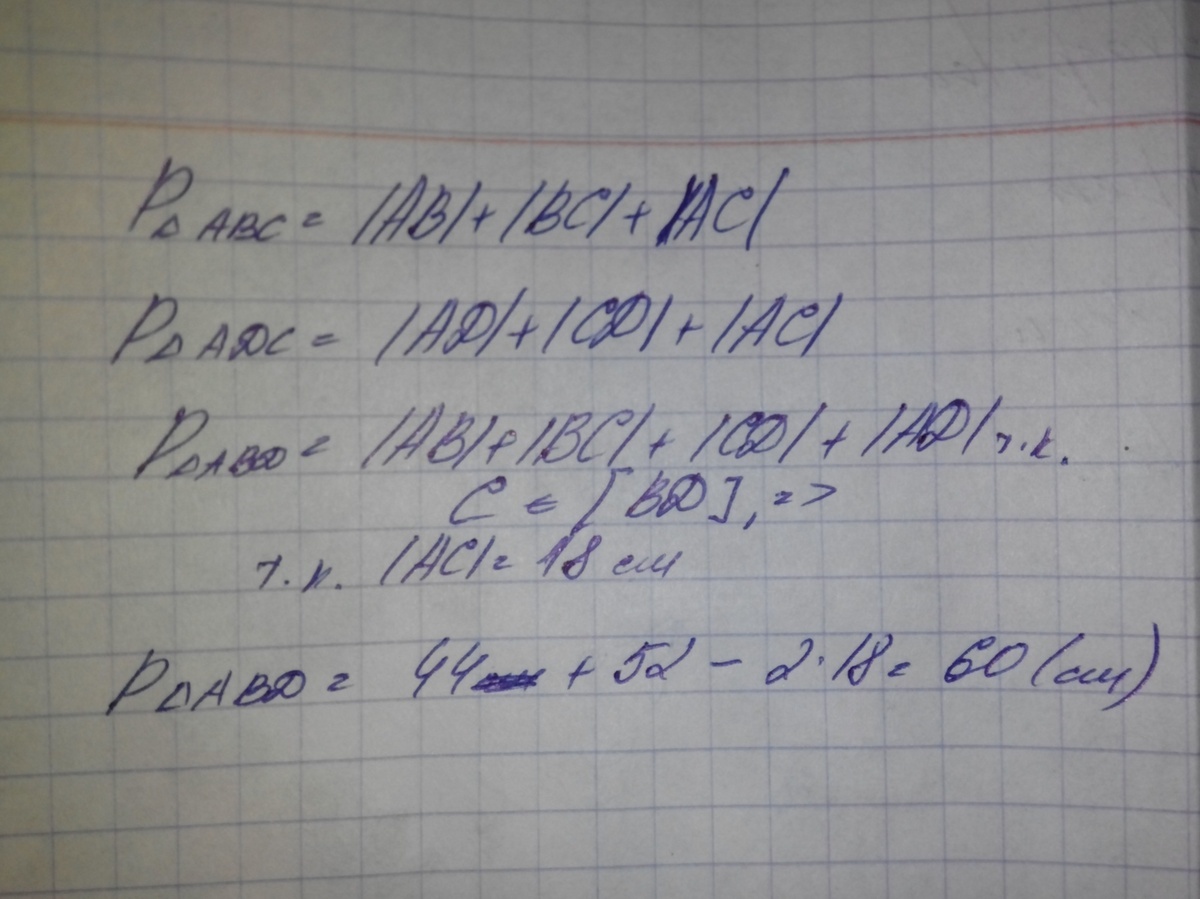 P△ABC = |AB| + |BC| + |AC|
P△ADC = |AD| + |CD| + |AC|
P△ABD = |AB| + |BC| + |CD| + |AD| т.к.
C ∈ [BD], =>
т.к. |AC| = 18 см
P△ABD = 44 + 52 - 2·18 = 60 (см)